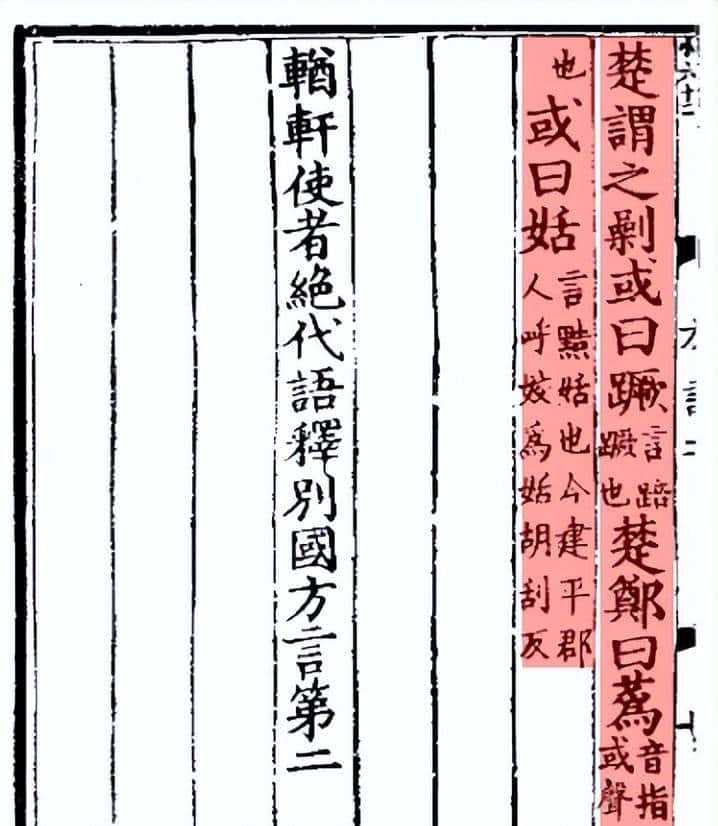 楚謂之劋或曰蹶言踣蹶也楚鄭曰蔿音指或聲
也或曰姡言黠姡也今建平郡人呼姣爲姡胡刮反
輶軒使者絕代語釋別國方言第二